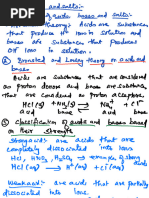 and salts:-
acids, bases and salts:-
theory:- Acids are substances
that produce H+ ions in solution and
bases are substances that produces
OH- ions in solution.
② Bronsted and Lowry theory on acids and
bases
Acids are substances that are considered
as proton donors and bases are substances,
that are considered as proton acceptors.
HCl (g) + NH3(g) ⟶ NH4+ + Cl-
acid base
③ Classification of acids and bases based
on their strength
Strong acids are acids that are
completely dissociated into
HCl, HNO3, H2SO4 ⟶ examples of strong
HCl (aq) ⟶ H+ + Cl-
Weak acid:- are acids that are partially
dissociated into ions.